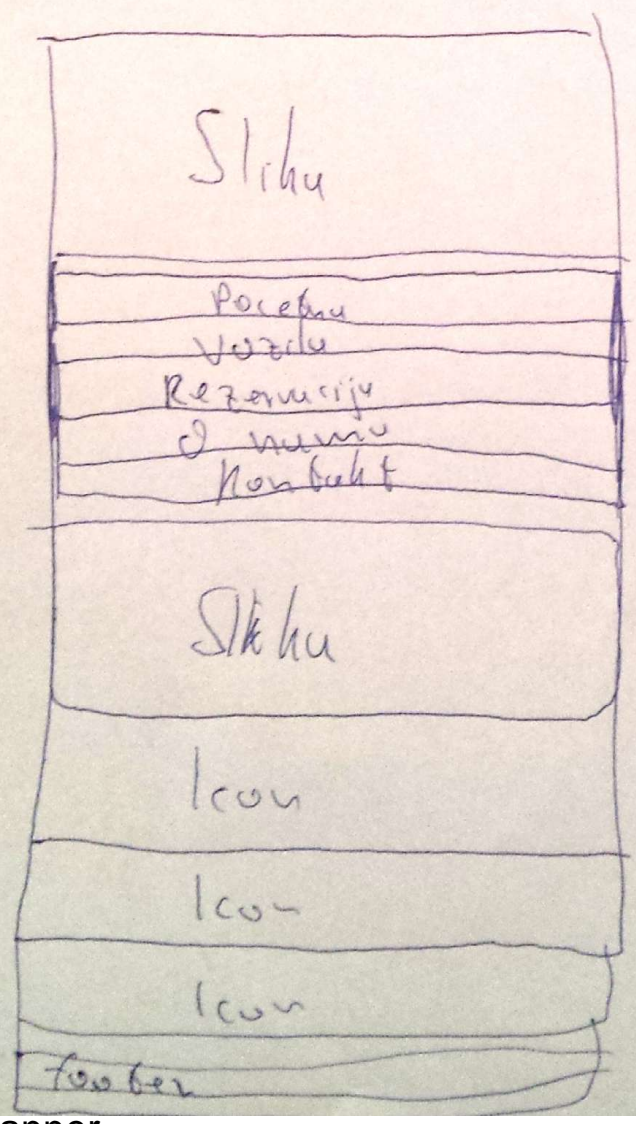 Slika
Pocetna
Vozila
Rezervacija
O nama
Kontakt
Slika
Icon
Icon
Icon
footer